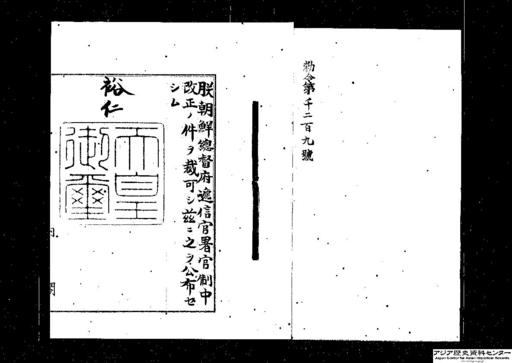 勅令第千二百九號
朕朝鮮總督府遞信官署官制中
改正ノ件ヲ裁可シ茲ニ之ヲ公布セ
シム
裕仁
天皇
御璽
アジア歴史資料センター
Japan Center for Asian Historical Records